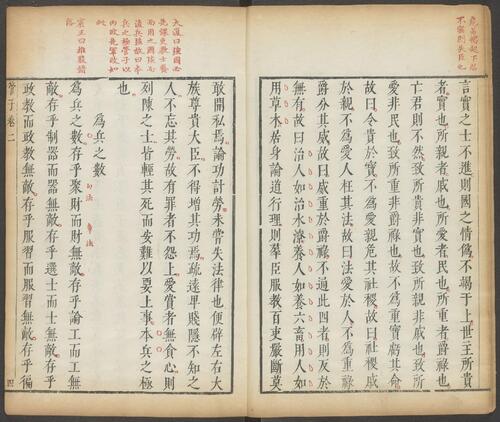 言實之士不進則國之情僞不竭于上世主所貴
者寶也所親者戚也所愛者民也所重者爵祿也
亡君則不然致所貴非寶也致所親非戚也致所
愛非民也致所重非爵祿也故不爲重寶虧其命
故曰令貴於寶不爲愛親危其社稷故曰社稷戚
於親不爲愛人枉其法故曰法愛於人不爲重祿
爵分其威故曰威重於爵祿不通此四者則反於
無有故曰治人如治水潦養人如養六畜用人如
用草木居身論道行理則羣臣服教百吏嚴斷莫
敢開私焉論功計勞未嘗失法律也便辟左右大
族尊貴大臣不得增其功焉疏遠卑賤隱不知之
人不忘其勞故有罪者不怨上愛賞者無貪心則
列陳之士皆輕其死而安難以要上事本兵之極
也
爲兵之數
爲兵之數存乎聚財而財無敵存乎論工而工無
敵存乎制器而器無敵存乎選士而士無敵存乎
政教而政教無敵存乎服習而服習無敵存乎徧
管子卷二
四